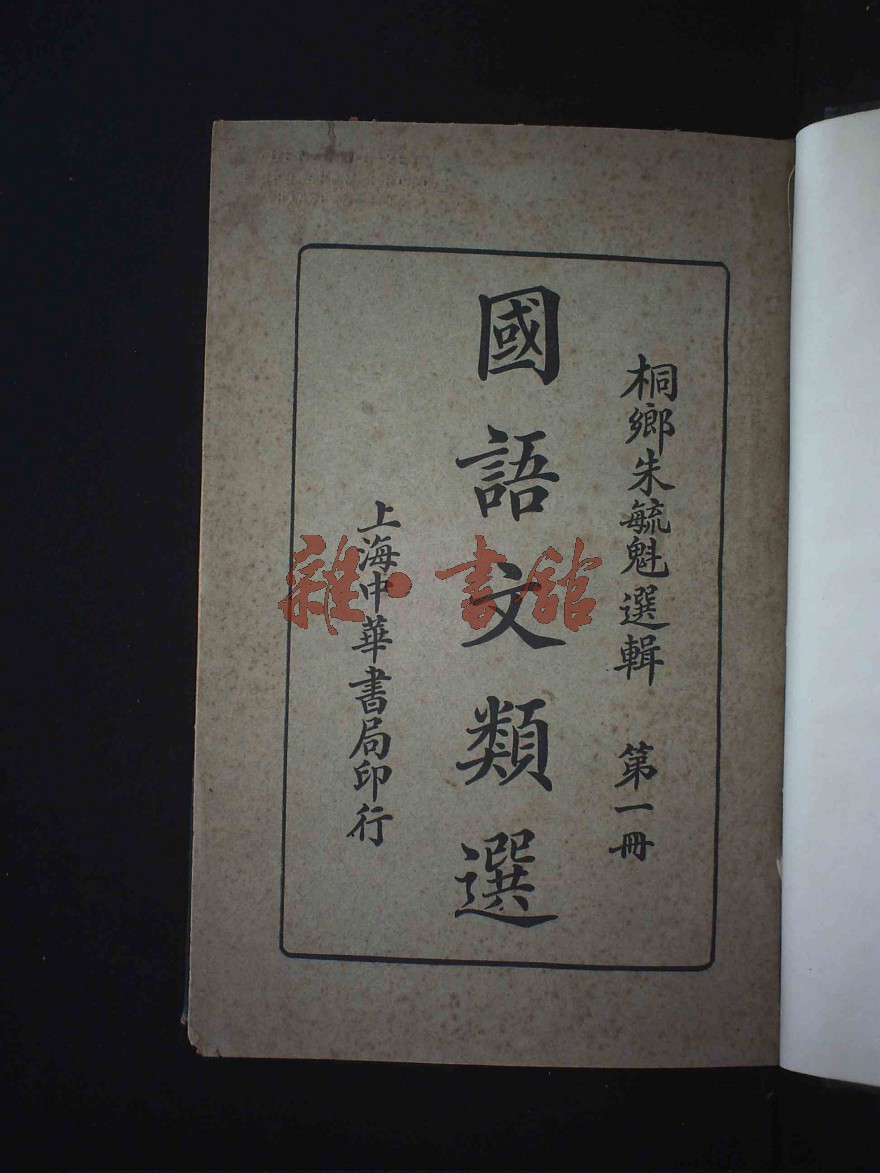 桐鄉朱毓魁選輯　第一冊
國語文類選
上海中華書局印行
雜·書館